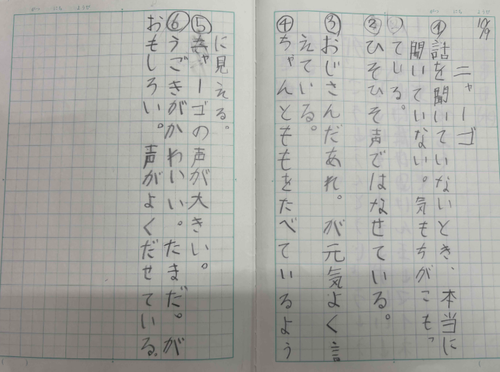 10/9
ニャーゴ
①話を聞いていないとき、本当に
聞いていない。気もちがこもっ
ている。
②ひそひそ声ではなせている。
③おじさんだあれ。が元気よく言
えている。
④ちゃんとももをたべているよう
に見える。
⑤ニャーゴの声が大きい。
⑥うごきがかわいい。たまだ。が
おもしろい。声がよくだせている。